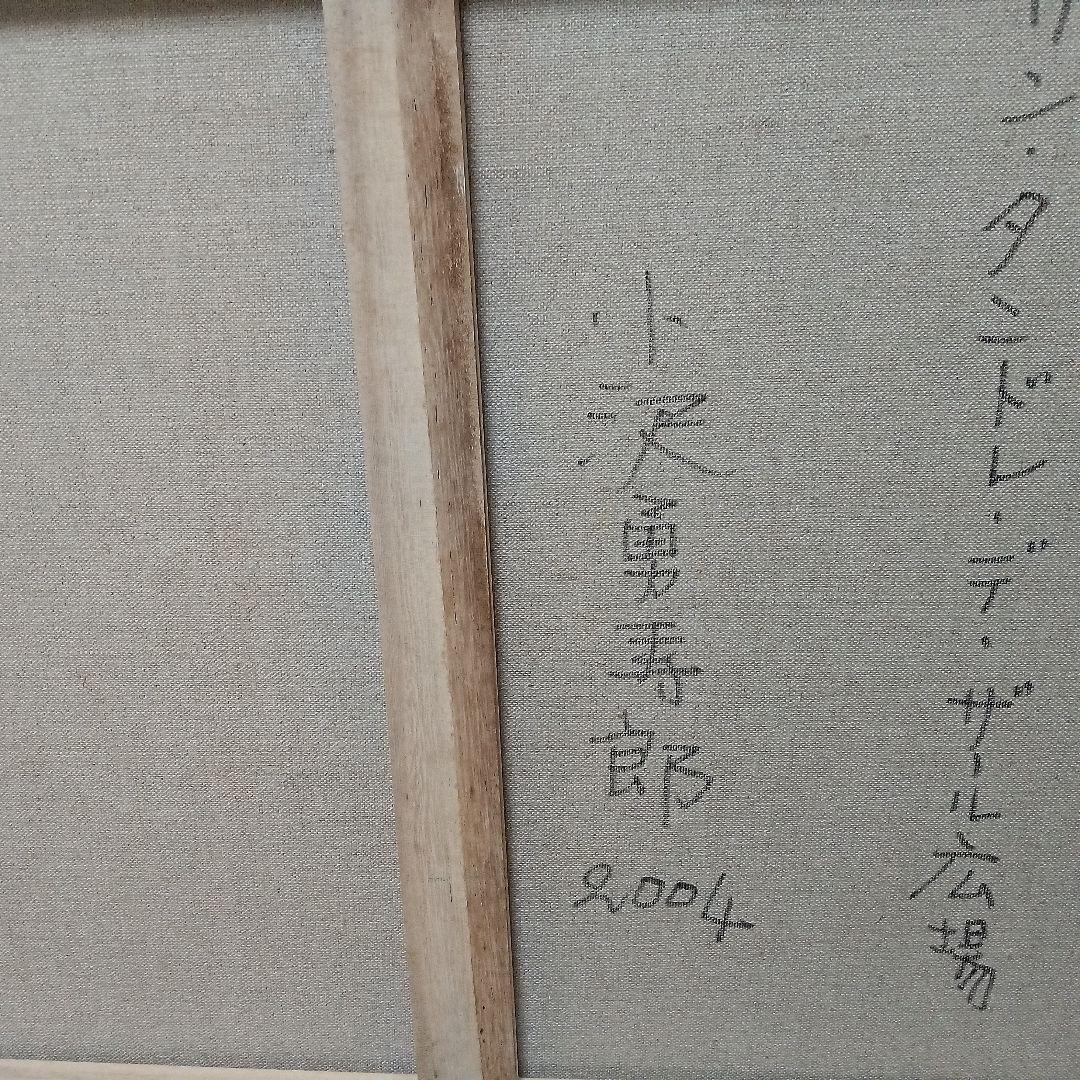 ン・タンドレ・デ・ザール広場
小沢勇寿郎 2004